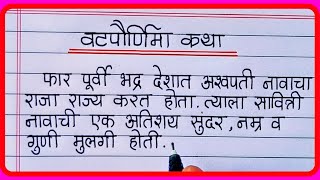 वटपौर्णिमा कथा
फार पूर्वी भद्र देशात अश्वपती नावाचा
राजा राज्य करत होता. त्याला सावित्री
नावाची एक अतिशय सुंदर, नम्र व
गुणी मुलगी होती.